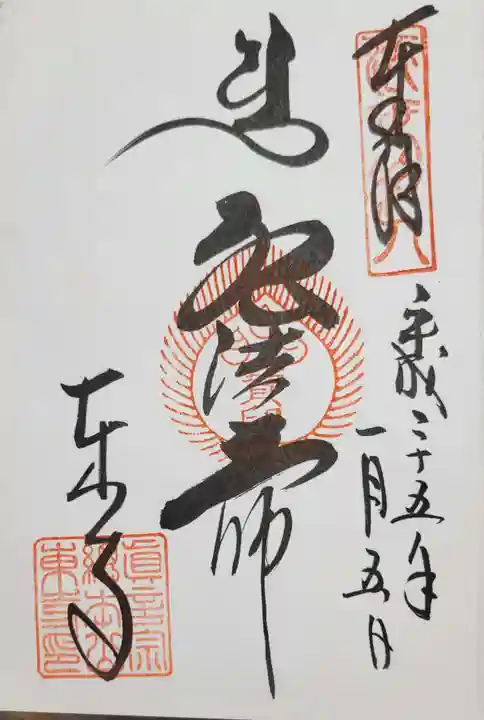 奉拝
平成二十五年
一月五日
弘法大師
東寺
眞言宗
總本山
東寺印